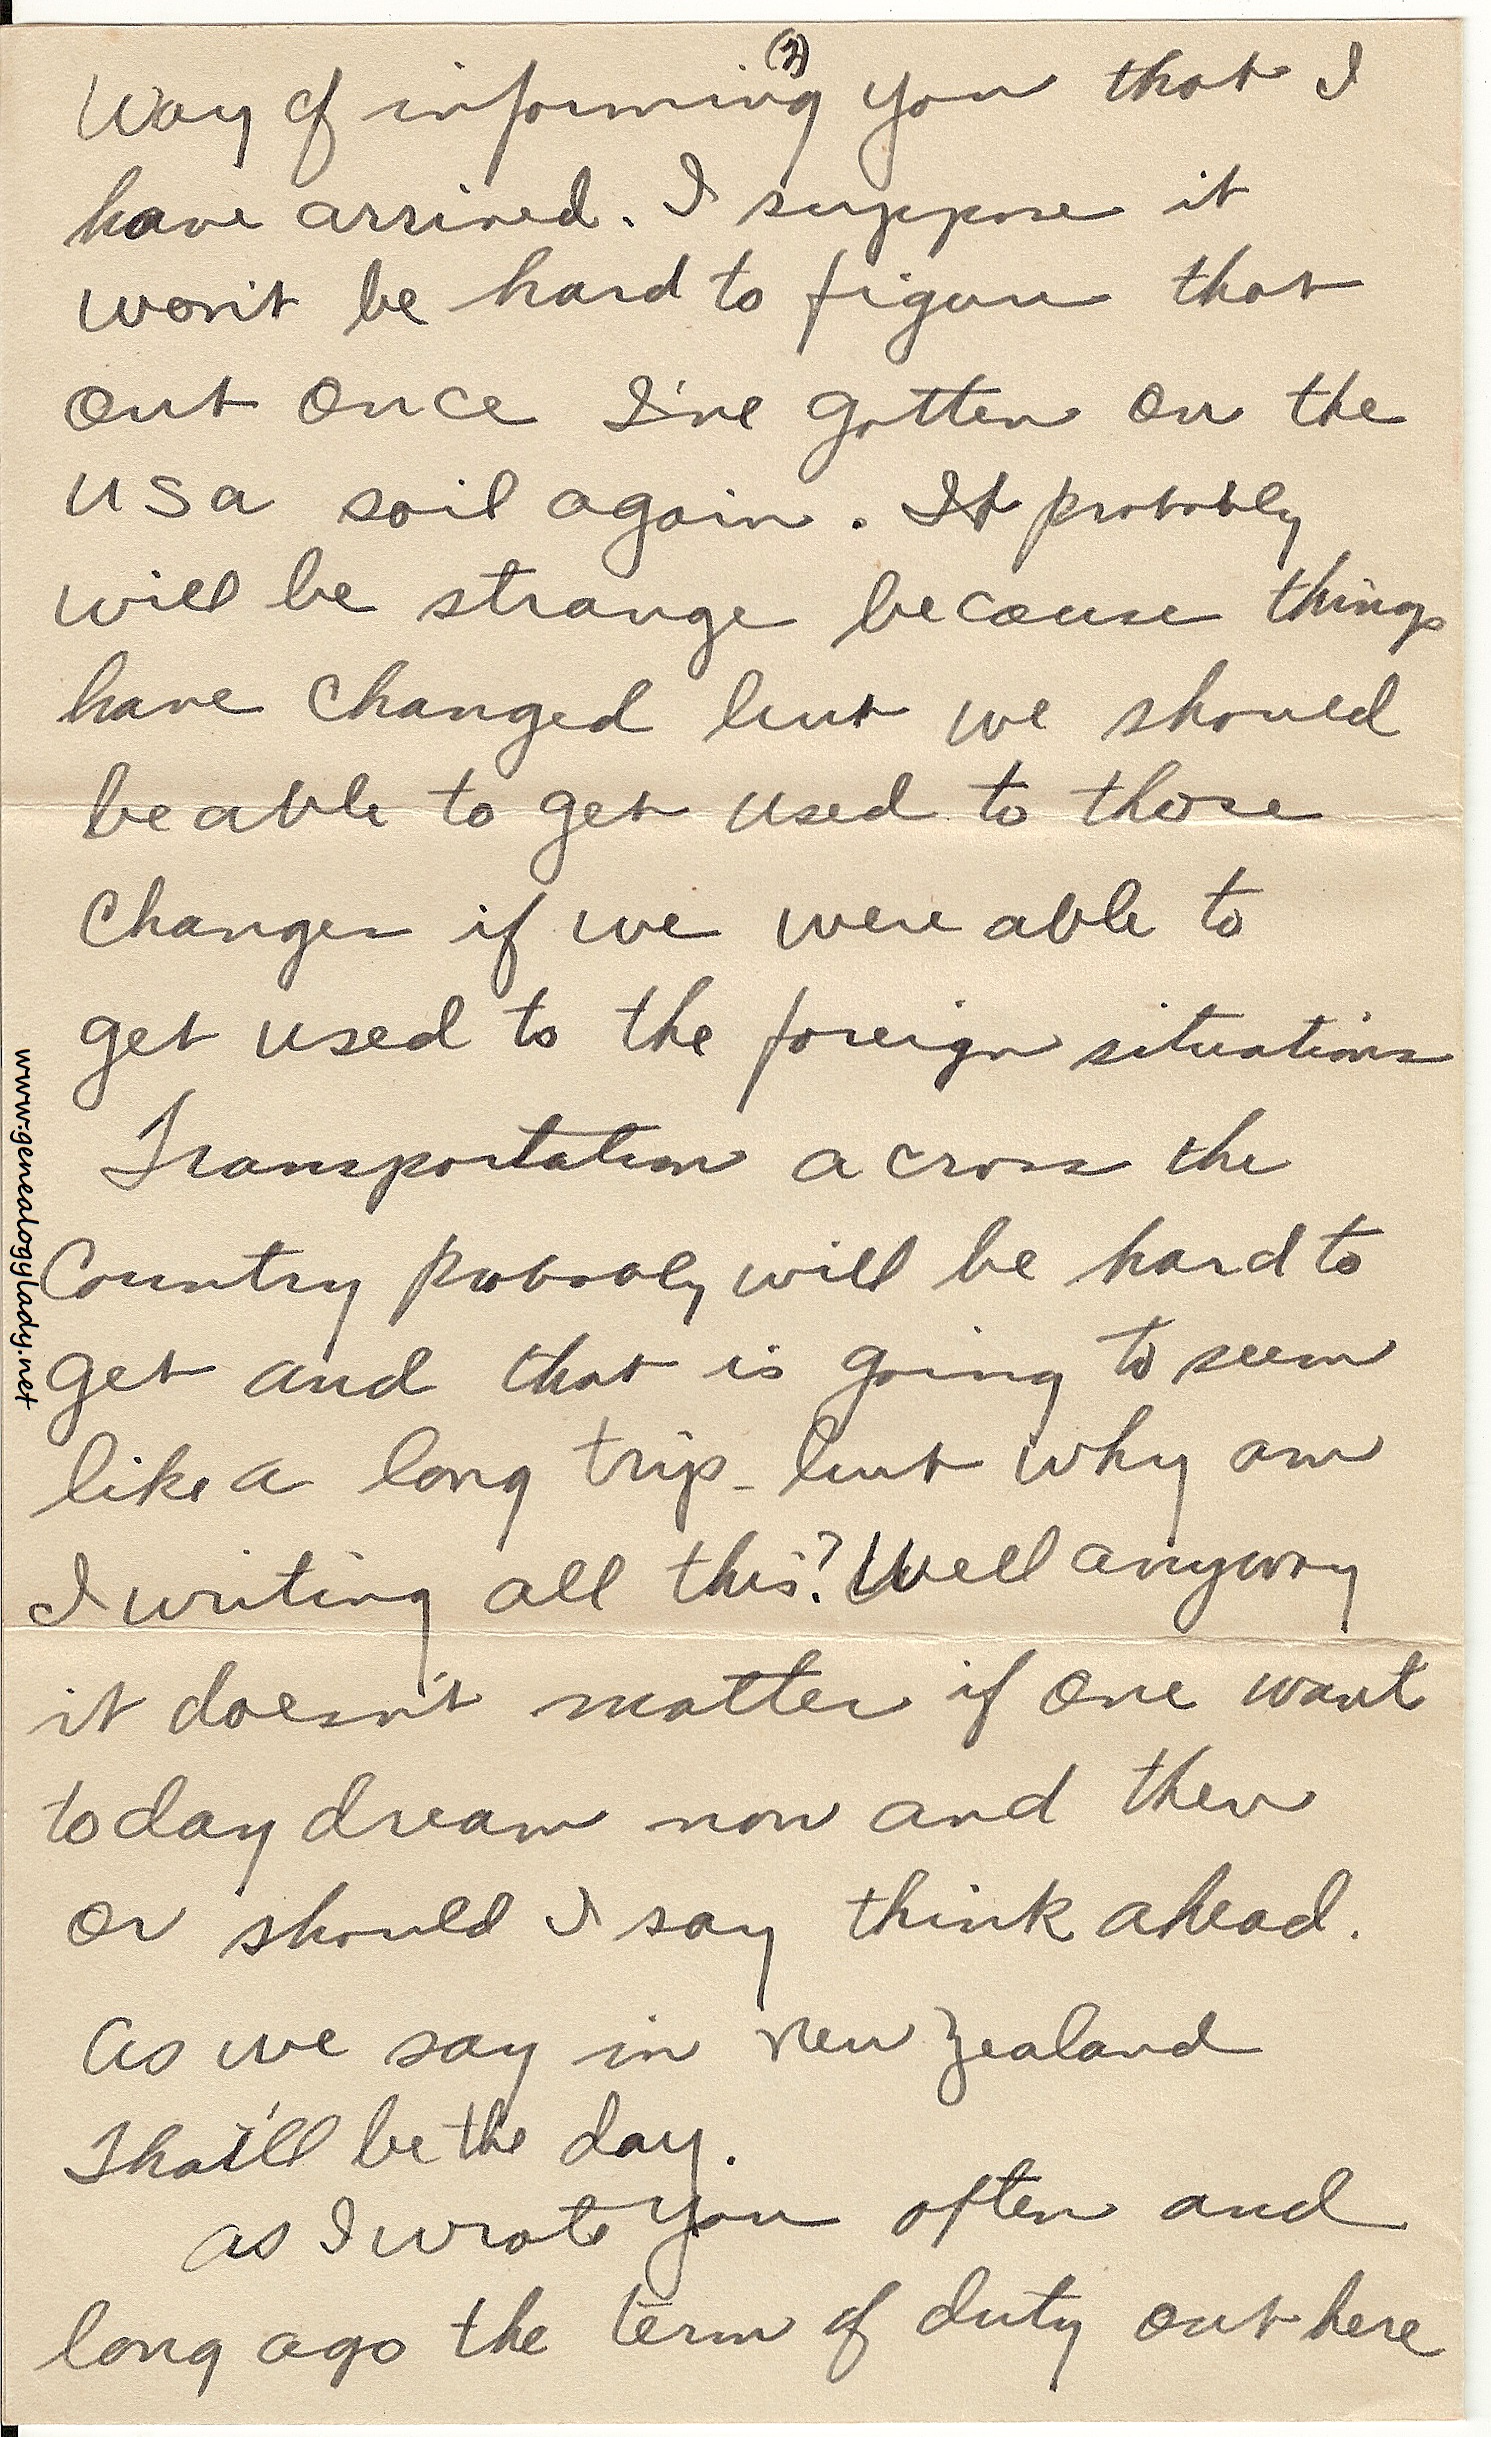 (2)
Way of informing you that I
have arrived. I suppose it
won't be hard to figure that
out once I've gotten on the
USA soil again. It probably
will be strange because things
have changed but we should
be able to get used to those
changes if we were able to
get used to the foreign situations
Transportation across the
Country probably will be hard to
get and that is going to seem
like a long trip - but why am
I writing all this? Well anyway
it doesn't matter if one want
to day dream now and then
or should I say think ahead.
As we say in New Zealand
That'll be the day.
As I wrote you often and
long ago the term of duty out here
www.genealogylady.net